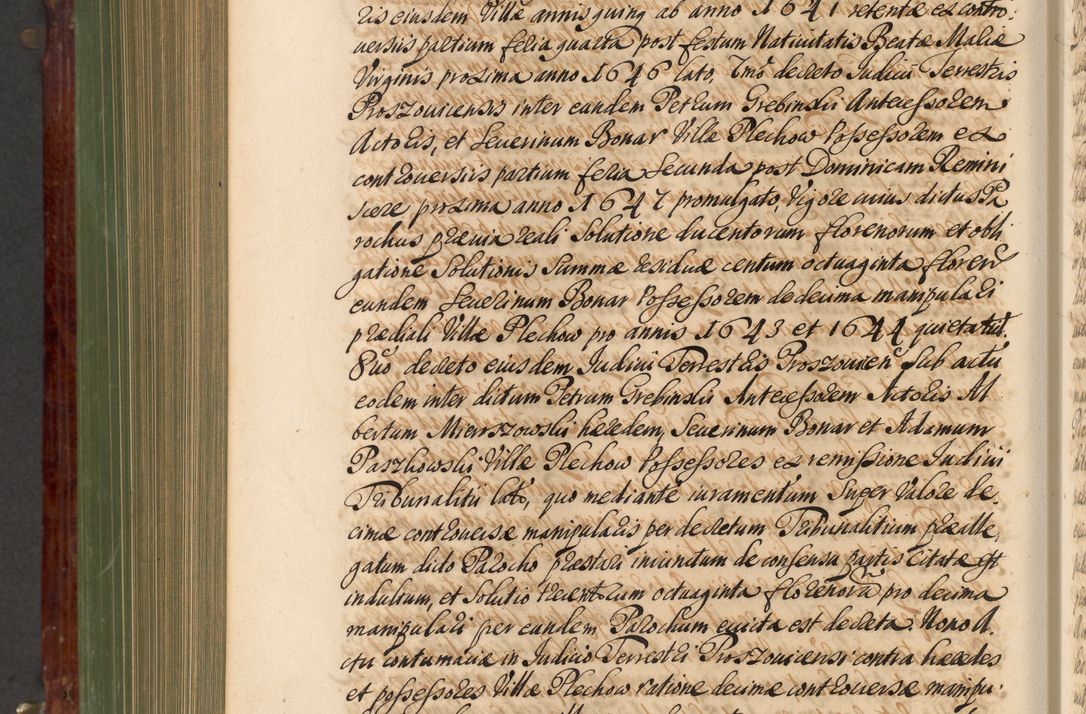 ris eiusdem Villæ annis quinq ab anno 1641 retentæ ex contro:
uersiis partium feria quarta post festum Natiuitatis Beatæ Mariæ
Virginis proxima anno 1646 lato, 7mo decreto Judicii Terrestris
Proszouicensis inter eundem Petrum Grebinski Antecessorem
Actoris, et Seuerinum Bonar Villæ Plechow Possessorem ex
controuersiis partium feria secunda post Dominicam Remini
scere proxima anno 1647 promulgato, Vigore cuius dictus Pa
rochus præuia reali Solutione ducentorum florenorum et obli
gatione Solutionis Summæ residuæ centum octuaginta floren
eundem Seuerinum Bonar Possessorem de decima manipulari
prædiali Villæ Plechow pro annis 1643 et 1644 quietauit.
8uo decreto eiusdem Judicii Terrestris Proszouicen sub actu
eodem inter dictum Petrum Grebinski Antecessorem Actoris Al
bertum Mierszowski hæredem, Seuerinum Bonar et Adamum
Paszkowski Villæ Plechow Possessores ex remissione Judicii
Tribunalitii lato, quo mediante iuramentum Super Valore de
cimæ controuersæ manipularis per decretum Tribunalitium præalle,
gatum dicto Parocho præstari iniunctum de consensu partis Citatæ est
indultum, et Solutio trecentcum octuaginta florenorū pro decima
manipulari per eundem Parochum euicta est decreta Nono A.
ctu contumaciæ in Judicio Terrestri Proszouicensi contra hæredes
et possessores Villæ Plechow ratione decimæ controuersæ manipu: